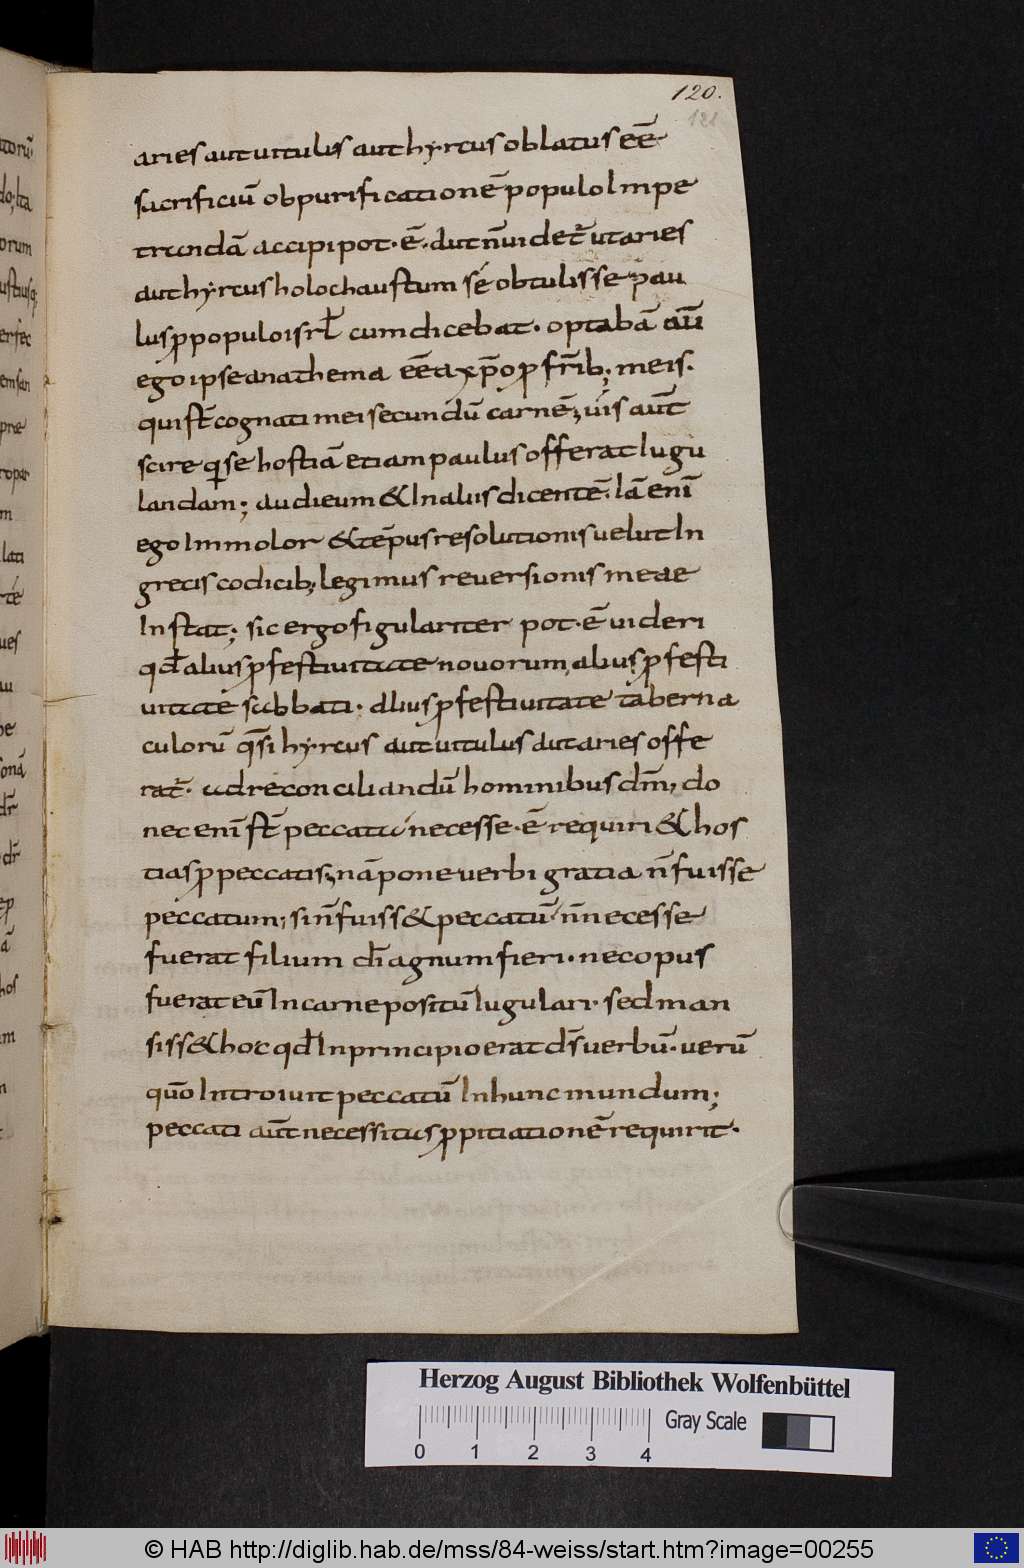 120.
121
aries aut uitulus aut hyrcus oblatus eē
sacrificiū ob purificationē populo Impe
trandā accipi pot· ē· aut n̄ uidet̄ ut aries
aut hyrcus holochaustum se obtulisse pau
lus ꝓ populo isrł cum dicebat· optabā aūt
ego ipse anathema eē a xp̄o ꝓ fr̄ib; meis·
qui st̄ cognati mei secundū carnē; uis aūt
scire qđ se hostiā etiam paulus offerat Iugu
landam; audi eum & In aliis dicentē· Iā enī
ego Immolor & tēpus resolutionis uel ut In
grecis codicib; legimus reuersionis meae
Instat; sic ergo figulariter pot· ē uideri
qđ alius ꝓ festiuitate nouorum, alius ꝓ festi
uitate sabbati· alius ꝓ festiuitate taberna
culorū q̄si hyrcus aut uitulus aut aries offe
rat̄· ad reconciliandū hominibus dm̄; do
nec enī st̄ peccata necesse· ē requiri & hos
tias ꝓ peccatis; nā pone uerbi gratia n̄ fuisse
peccatum; si n̄ fuiss& peccatū n̄ necesse
fuerat filium dī agnum fieri· nec opus
fuerat eū In carne positū Iugulari· sed man
siss& hoc qđ In principio erat ds̄ uerbū· uerū
quō Introiuit peccatū In hunc mundum;
peccati aūt necessitas ꝓpitiationē requirit·
Herzog August Bibliothek Wolfenbüttel
Gray Scale
0 1 2 3 4
© HAB http://diglib.hab.de/mss/84-weiss/start.htm?image=00255